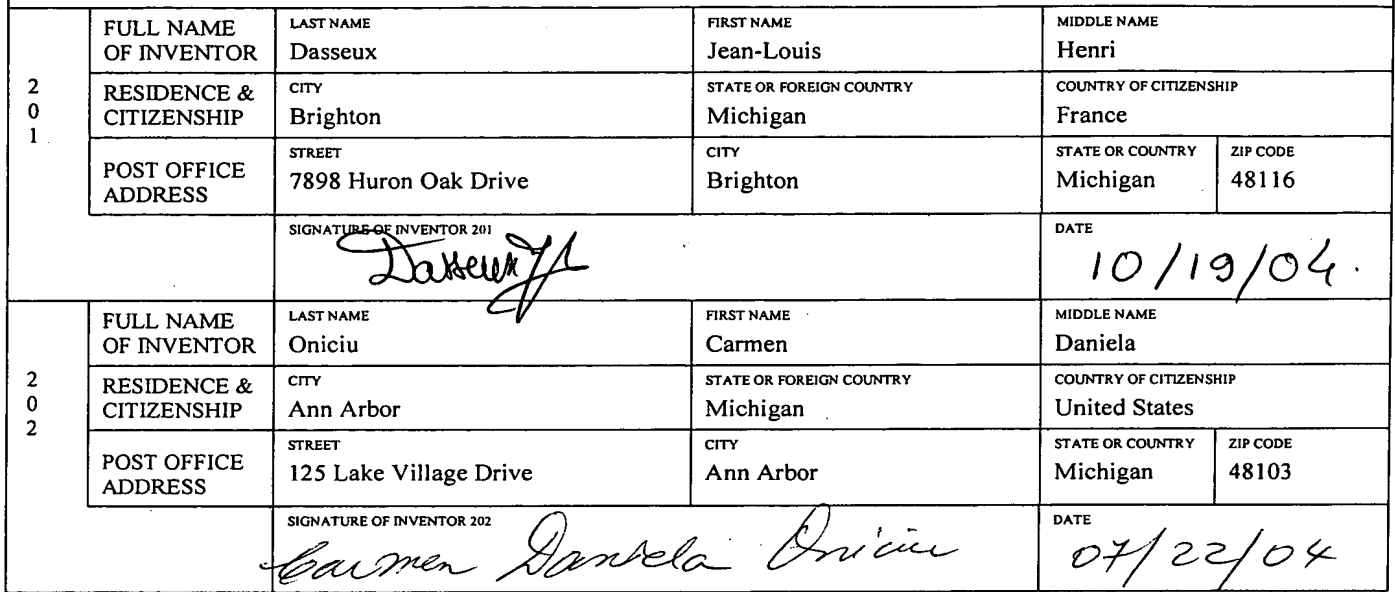 FULL NAME OF INVENTOR
LAST NAME
Dasseux
FIRST NAME
Jean-Louis
MIDDLE NAME
Henri
2
0
1
RESIDENCE & CITIZENSHIP
CITY
Brighton
STATE OR FOREIGN COUNTRY
Michigan
COUNTRY OF CITIZENSHIP
France
POST OFFICE ADDRESS
STREET
7898 Huron Oak Drive
CITY
Brighton
STATE OR COUNTRY
Michigan
ZIP CODE
48116
SIGNATURE OF INVENTOR 201
Dasseux JL
DATE
10/19/04.
FULL NAME OF INVENTOR
LAST NAME
Oniciu
FIRST NAME
Carmen
MIDDLE NAME
Daniela
2
0
2
RESIDENCE & CITIZENSHIP
CITY
Ann Arbor
STATE OR FOREIGN COUNTRY
Michigan
COUNTRY OF CITIZENSHIP
United States
POST OFFICE ADDRESS
STREET
125 Lake Village Drive
CITY
Ann Arbor
STATE OR COUNTRY
Michigan
ZIP CODE
48103
SIGNATURE OF INVENTOR 202
Carmen Daniela Oniciu
DATE
07/22/04